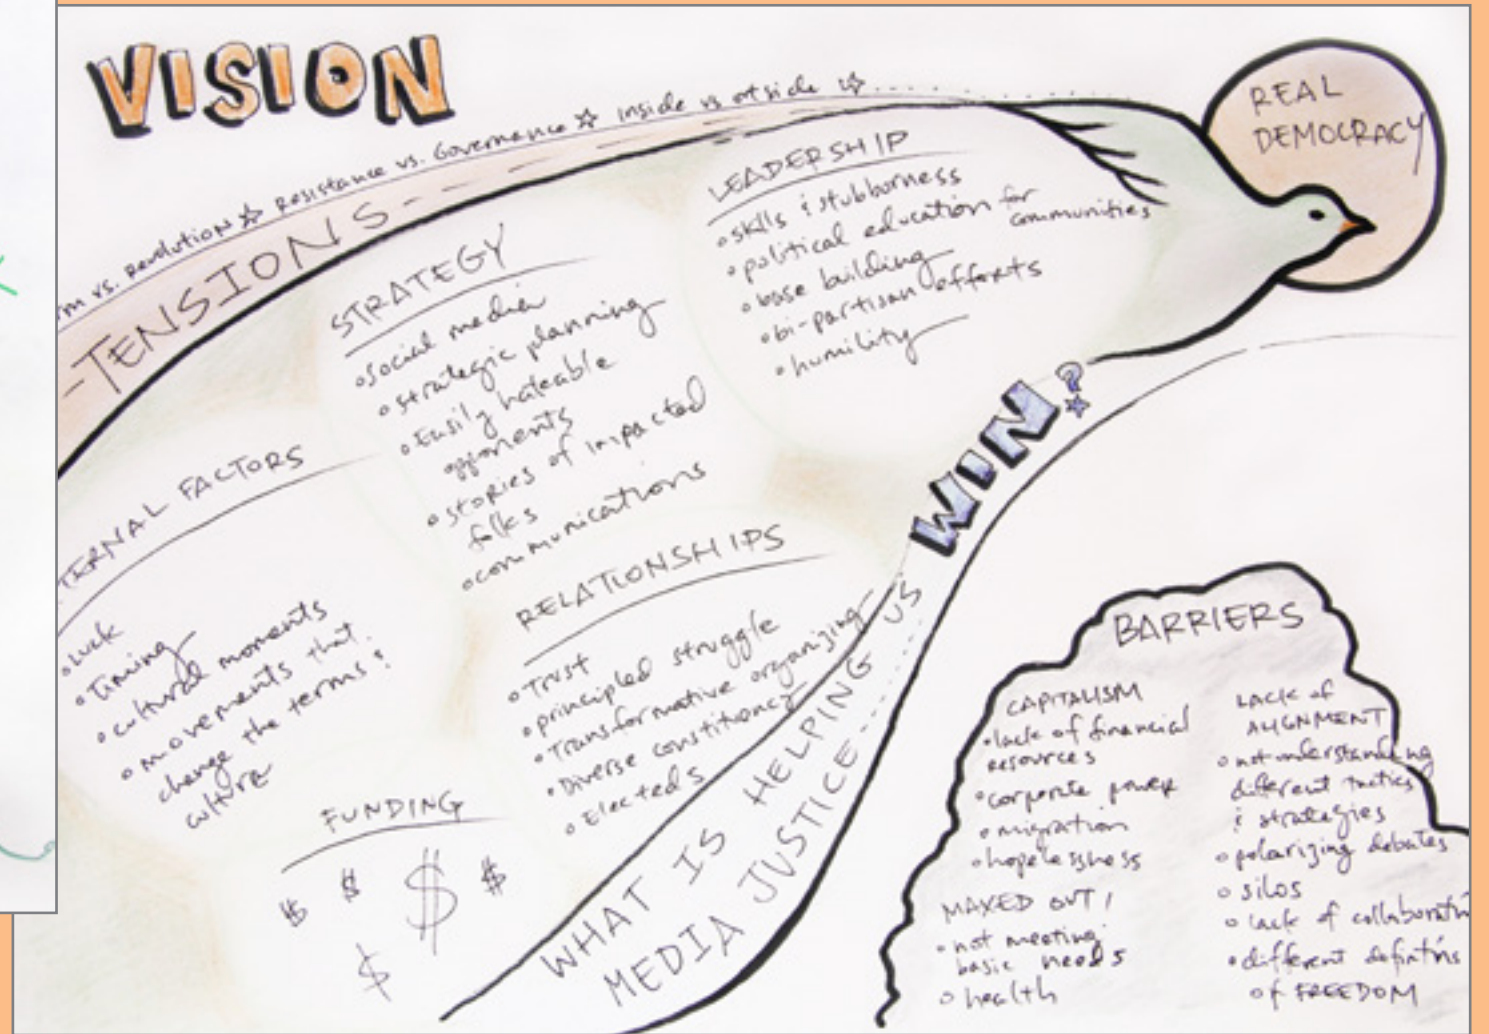 VISION
rm vs. Revolution ☆ Resistance vs. Governance ☆ inside vs outside ☆ . . . .
- TENSIONS -
REAL
DEMOCRACY
LEADERSHIP
• skills & stubborness
• political education for
communities
• base building
• bi-partisan efforts
• humility
STRATEGY
• social media
• strategic planning
• Easily hateable
opponents
• stories of impacted
folks
• communications
TERNAL FACTORS
• luck
• Timing
• cultural moments
• movements that
change the terms &
culture
RELATIONSHIPS
• Trust
• principled struggle
• Transformative organizing
• Diverse constituency
• Electeds
FUNDING
$ $ $ $
$
WHAT IS HELPING US
MEDIA JUSTICE . . .
WIN?
BARRIERS
CAPITALISM
• lack of financial
resources
• corporate power
• migration
• hopelessness
MAXED OUT!
• not meeting
basic needs
• health
LACK of
ALIGNMENT
• not understanding
different tactics
& strategies
• polarizing debates
• silos
• lack of collaboratn
• different defintins
of FREEDOM